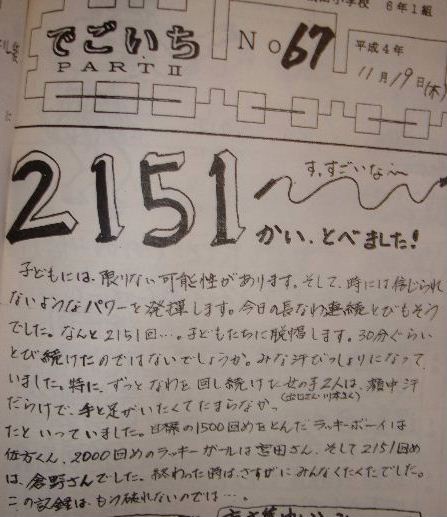 小学校 6年1組
でごいち
PART II
No 67
平成4年
11月19日(木)
2151
す、すごいな〜
かい、とべました!
子どもには、限りない可能性があります。そして、時には信じられ
ないようなパワーを発揮します。今日の長なわ連続とびもそう
でした。なんと2151回…。子どもたちに脱帽します。30分ぐらい
とび続けたのではないでしょうか。みな汗びっしょりになって
いました。特に、ずっとなわを回し続けた女の子2人は、顔中汗
だらけで、手と足がいたくてたまらなかっ
たといっていました。目標の1500回めをとんだラッキーボーイは
佐方くん、2000回めのラッキーガールは宮田さん、そして2151回め
は、倉野さんでした。終わった時は、さすがにみんなくたくたでした。
この記録は、もう破れないのでは…。